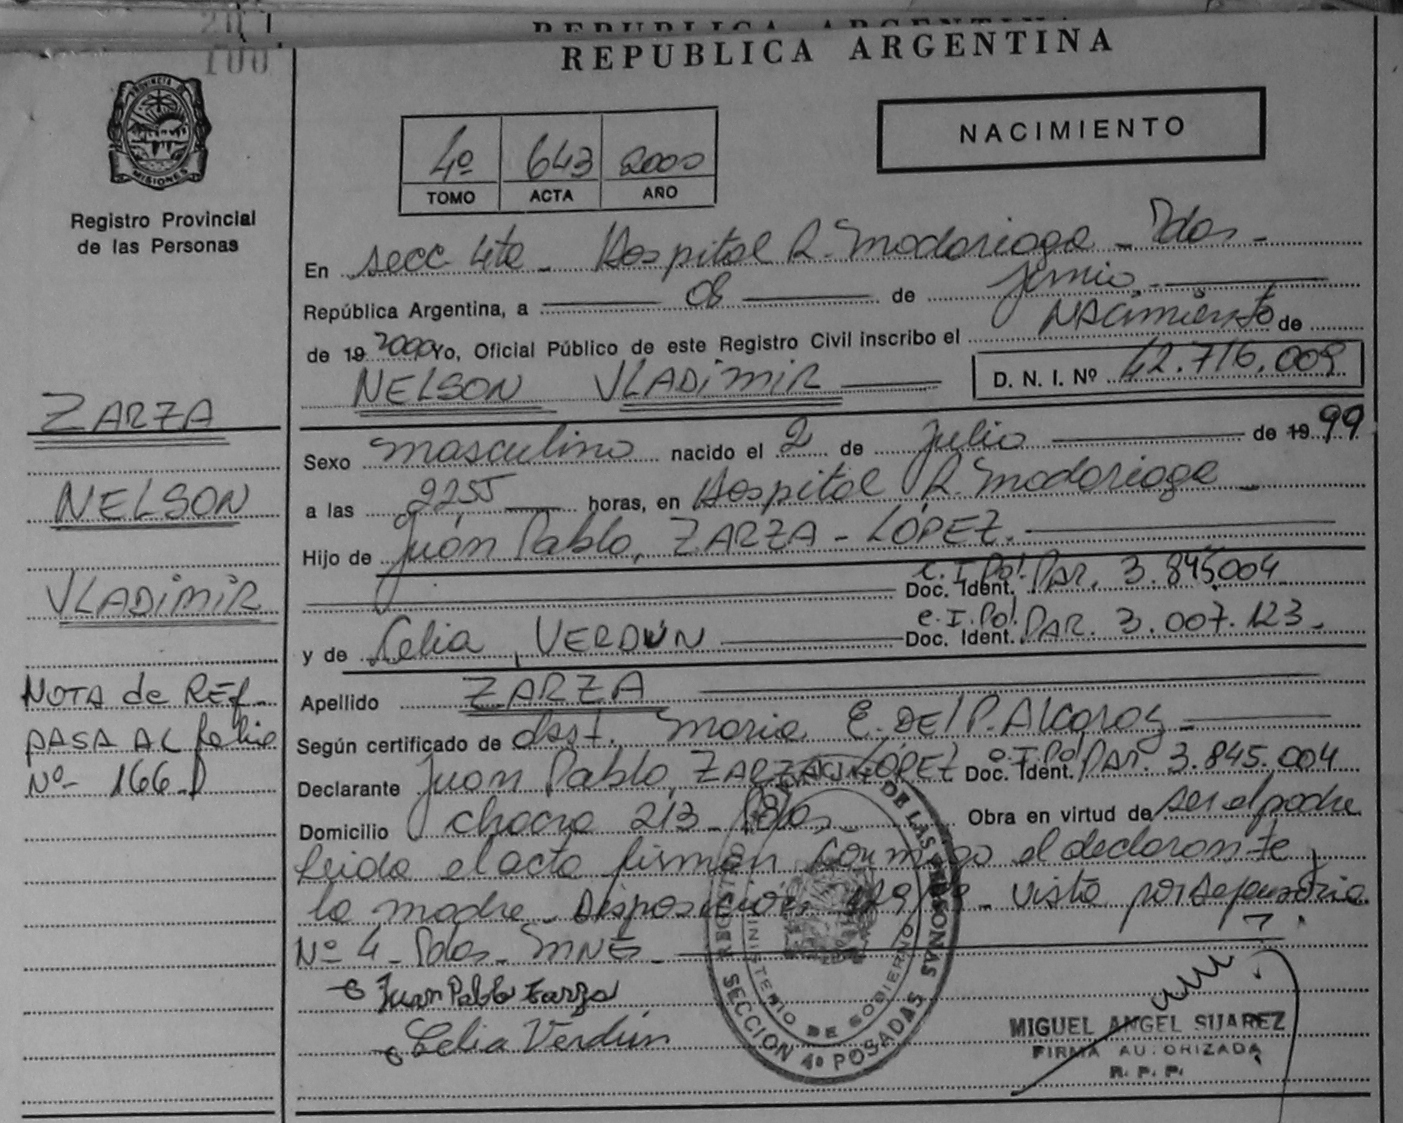 REPUBLICA ARGENTINA
REPUBLICA ARGENTINA
100
PROVINCIA DE
MISIONES
Registro Provincial
de las Personas
4º 643 2000
TOMO ACTA AÑO
NACIMIENTO
En secc 4ta - Hospital R. Madariaga - Pdas -
República Argentina, a 08 de junio
de 19 2000 Yo, Oficial Público de este Registro Civil inscribo el NAcimiento de
NELSON VLADIMIR D. N. I. Nº 42.716.009
ZARZA
NELSON
VLADIMIR
NOTA de REf.
PASA AL folio
Nº- 166 D
Sexo masculino nacido el 2 de Julio de 19 99
a las 2255 horas, en Hospital R. Madariaga -
Hijo de Juan Pablo, ZARZA - LÓPEZ.
Doc. Ident. C.I.Pol. PAR. 3.845.004
y de Celia, VERDÚN Doc. Ident. C.I.Pol. PAR. 3.007.123.
Apellido ZARZA
Según certificado de obst. Maria E. DEl P. Alcaraz -
Declarante Juan Pablo, ZARZA LÓPEZ Doc. Ident. C.I.Pol PAR. 3.845.004
Domicilio chacra 213 - Pdas - Obra en virtud de ser el padre
Leida el acta firman conmigo el declarante y
la madre - Disposición - visto por Defensoria
Nº 4 - Pdas - MNES -
Juan Pablo Zarza
Celia Verdún
REGISTRO DE LAS PERSONAS
MINISTERIO DE GOBIERNO
SECCION 4º POSADAS
MIGUEL ANGEL SUAREZ
FIRMA AUTORIZADA
R. P. P.